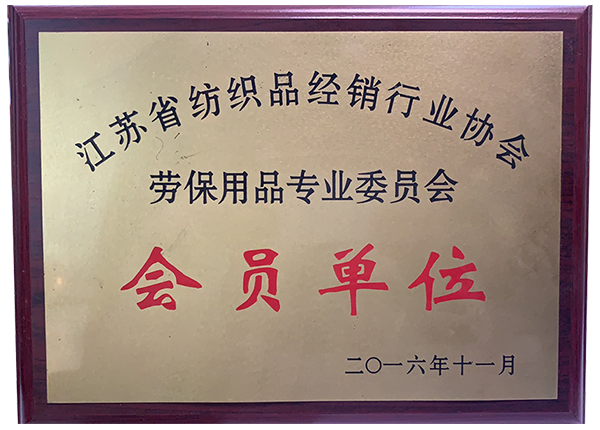 江苏省纺织品经销行业协会
劳保用品专业委员会
会员单位
二〇一六年十一月